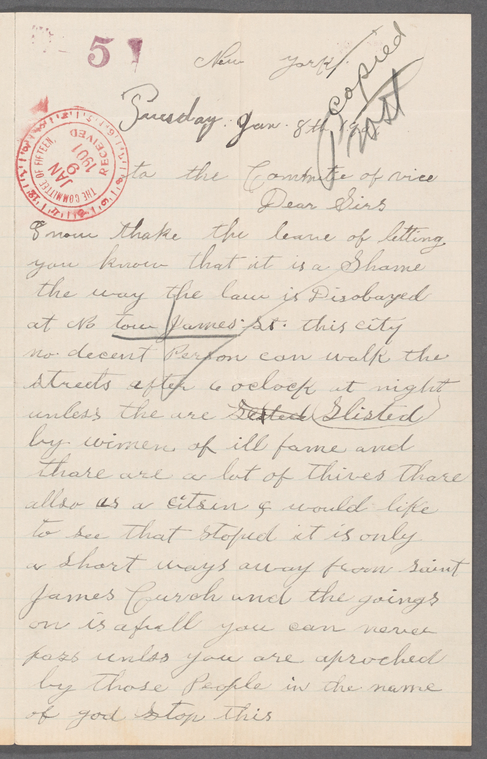 51
New York
copied
Tuesday. Jan. 8th
THE COMMITTEE OF FIFTEEN,
JAN
9
1901
RECEIVED
to the Committe of vice
Dear Sirs
I now thake the leave of letting
you know that it is a Shame
the way the law is Disobayed
at No tow James St. this city
no decent Person can walk the
streets after 6 oclock at night
unless the are Slisted
by women of ill fame and
thare are a lot of thives thare
allso as a citsen I would like
to see that stoped it is only
a short ways away from Saint
James Church and the goings
on is afull you can never
pass unless you are aproched
by those People in the name
of god Stop this